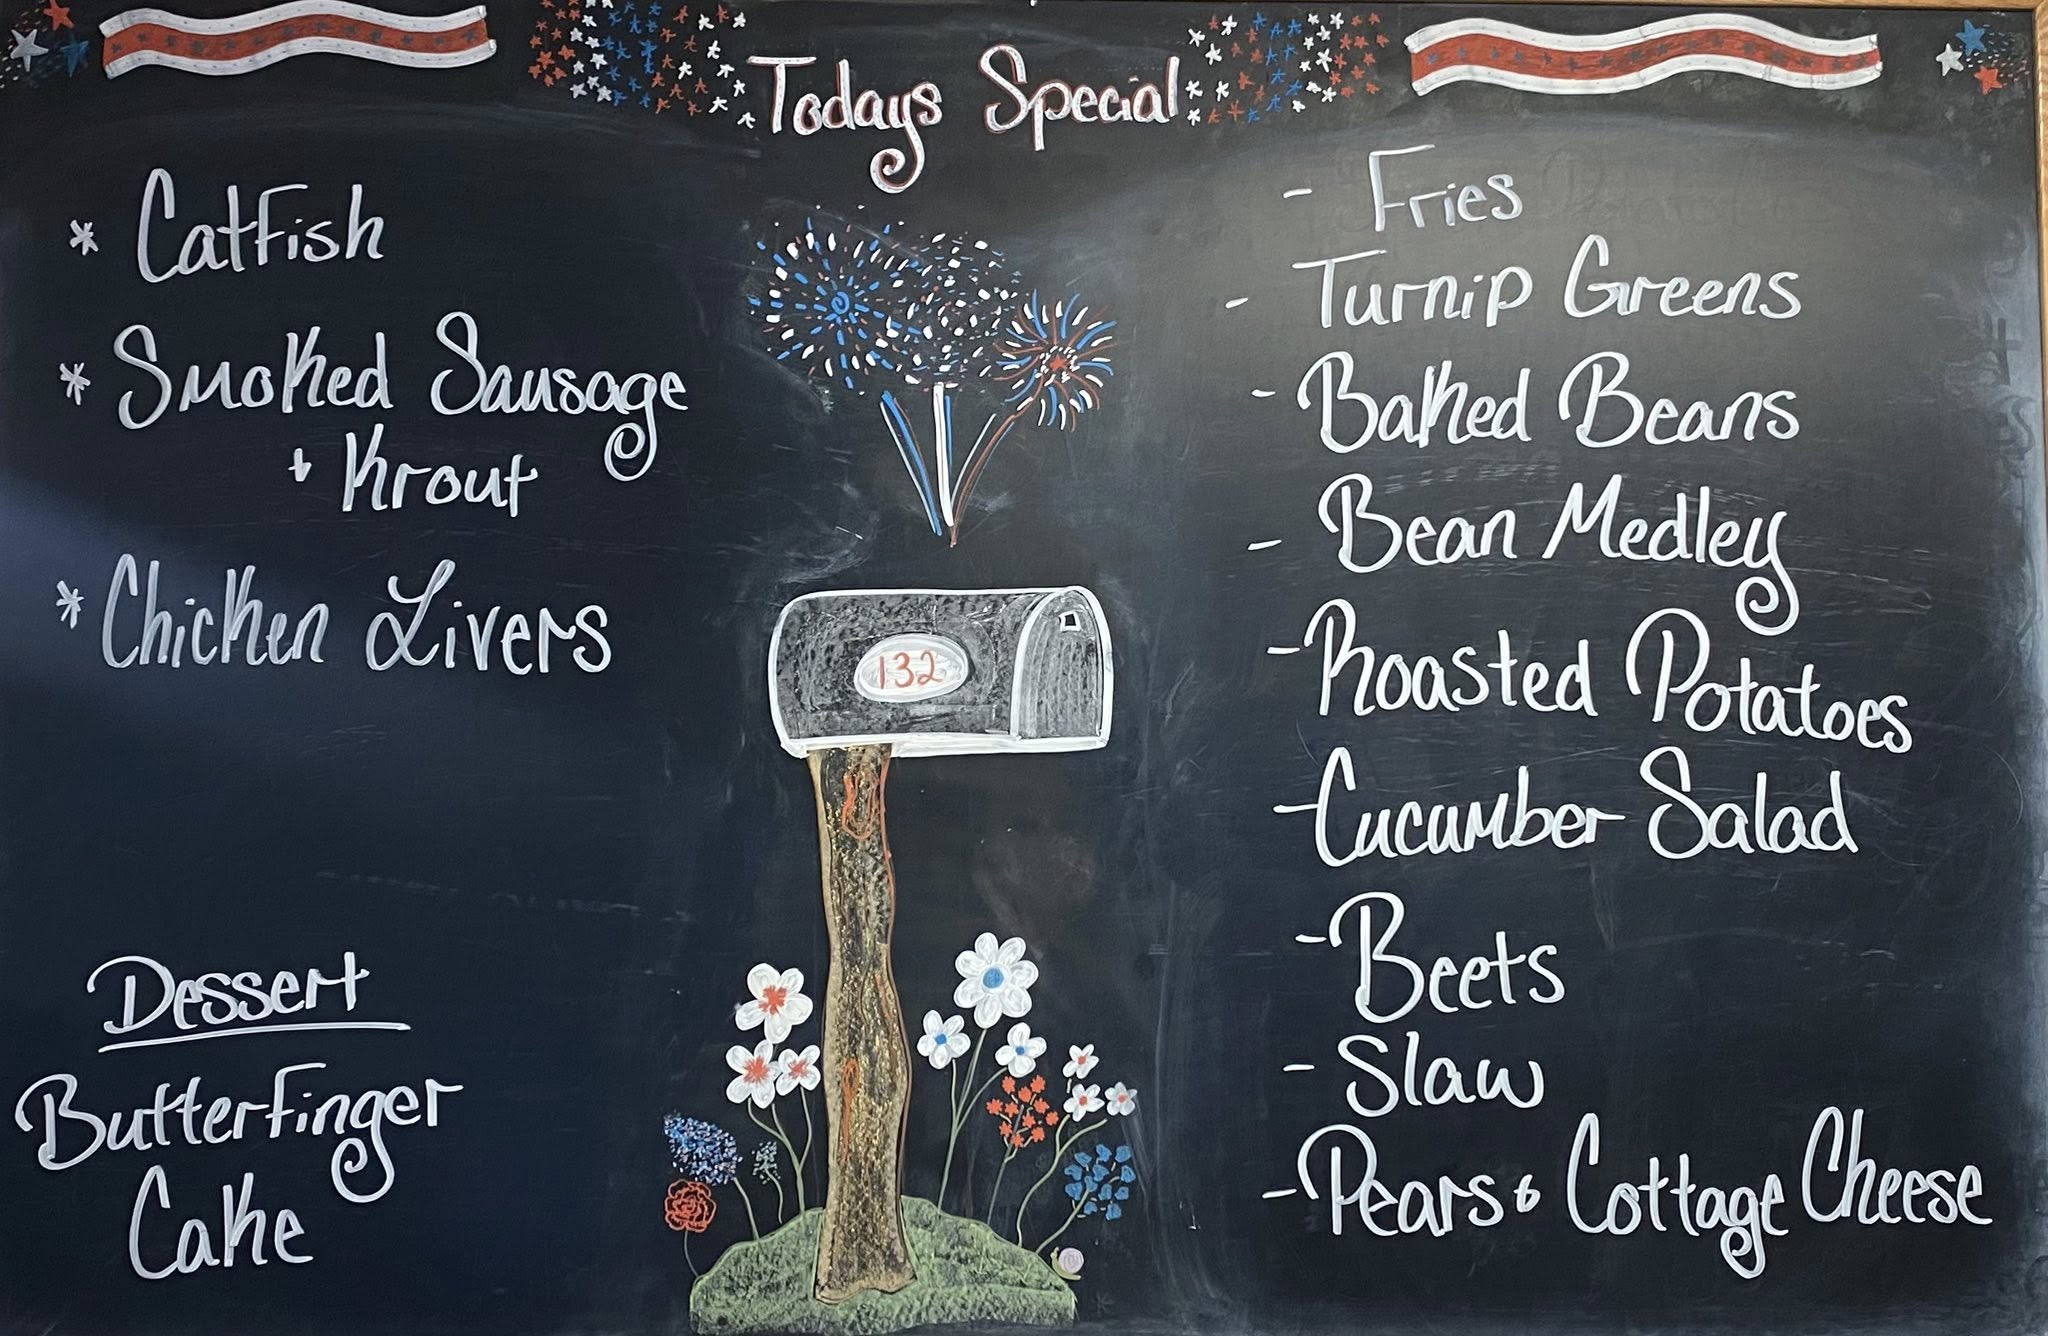 Todays Special
* Catfish
* Smoked Sausage
+ Krout
* Chicken Livers
Dessert
Butterfinger
Cake
132
- Fries
- Turnip Greens
- Baked Beans
- Bean Medley
- Roasted Potatoes
- Cucumber Salad
- Beets
- Slaw
- Pears + Cottage Cheese